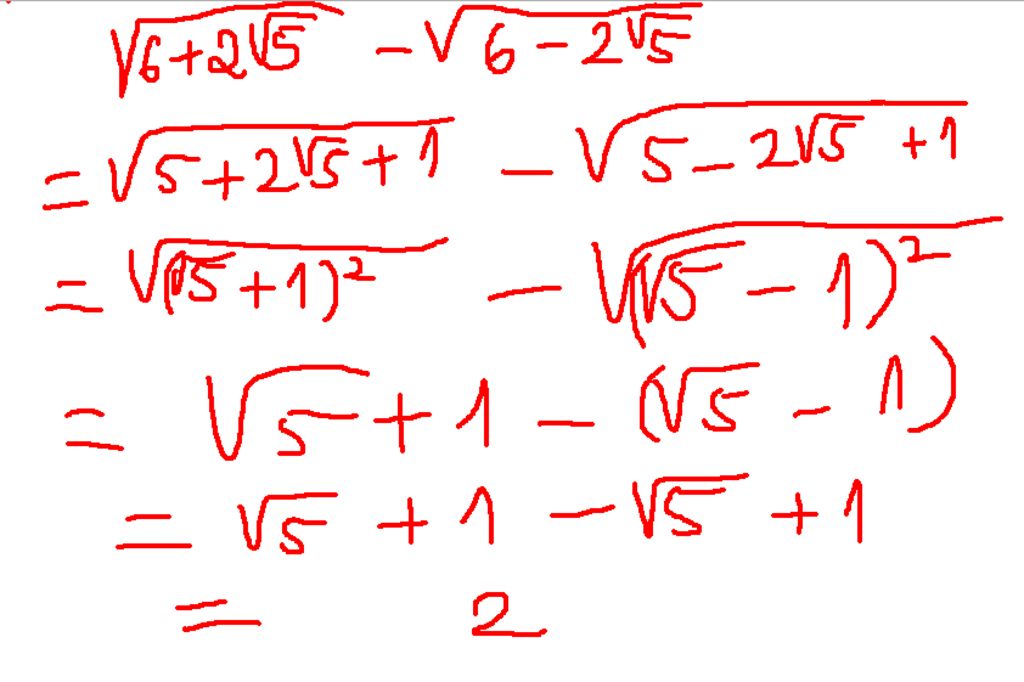 √(6+2√5) - √(6-2√5)
= √(5+2√5+1) - √(5-2√5+1)
= √((√5+1)²) - √((√5-1)²)
= √5 + 1 - (√5 - 1)
= √5 + 1 - √5 + 1
= 2